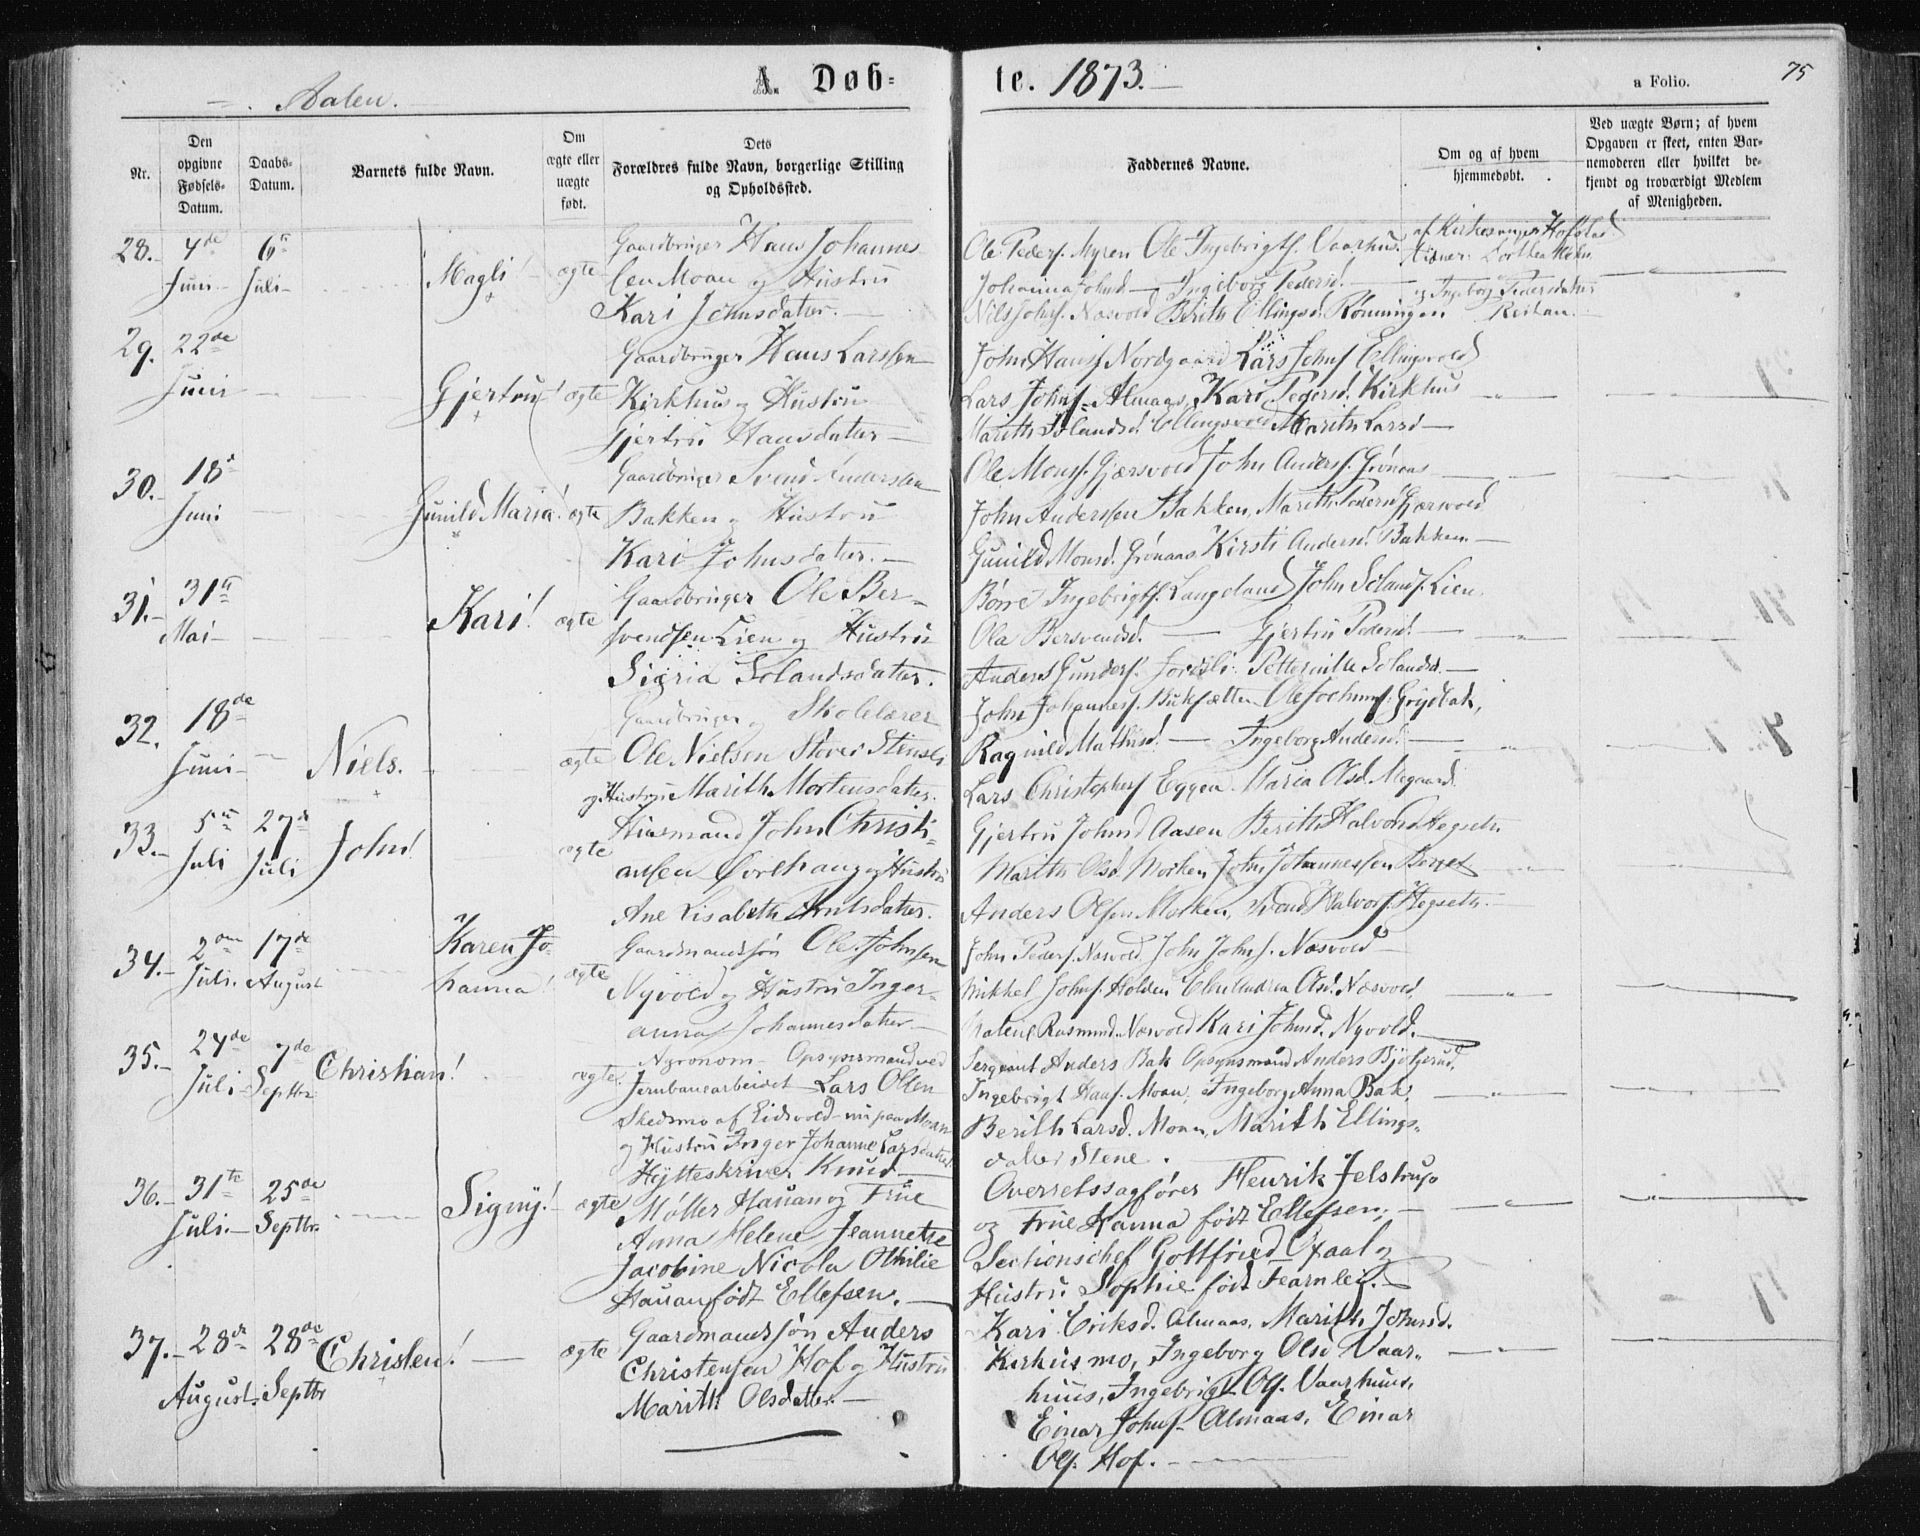 Aalen.
A. Døbte. 1873.
a Folio. 75
Nr.
Den opgivne Fødsels-Datum.
Daabs-Datum.
Barnets fulde Navn.
Om ægte eller uægte født.
Dets Forældres fulde Navn, borgerlige Stilling og Opholdssted.
Faddernes Navne.
Om og af hvem hjemmedøbt.
Ved uægte Børn; af hvem Opgaven er skeet, enten Barnemoderen eller hvilket bekjendt og troværdigt Medlem af Menigheden.
28. 4de Juni 6te Juli Magli! ægte
Gaardbruger Hans Johannes-
sen Moan og Hustru
Kari Johnsdatter.
Ole Peders. Myren Ole Ingebrigts. Vaarhus.
Johanna Johnsd. Ingeborg Pedersd.
Nils Johns. Næsvold Berith Ellingsd. Rønningen
af Kirkesanger Hofstad
og Ingeborg Pedersdatter
Reitan.
29. 22de Juni Gjertru! ægte
Gaardbruger Hans Larssen
Kirkhus og Hustru
Gjertru Hansdatter
John Hans. Nordgaard Lars Johns. Ellingsvold
Lars Johns. Almaas, Kari Pedersd. Kirkhus
Marith Elandsd. Ellingsvold Marith Larsd
30. 18d Juni Gunild Maria! ægte
Gaardbruger Svend Anderssen
Bakken og Hustru
Kari Johnsdatter.
Ole Mons. Gjærsvold John Anders. Grønaas
John Anderssen Bakken, Marith Pedersd Gjærsvold
Gunild Monsd. Grønaas Kirsti Andersd. Bakken.
31. 31te Mai Kari! ægte
Gaardbruger Ole Ber-
svendsen Lien og Hustru
Sigrid Elandsdatter.
Børre Ingebrigts. Langeland John Elands. Lien.
Ola Bersvendsd. Gjertru Pedersd.
Anders Gunders. Jordsli. Petternille Elandsd.
32. 18de Juni Niels. ægte
Gaardbruger og Skolelærer
Ole Nielsen Støver Stensli
og Hustru Marith Mortensdatter.
John Johannes. Buksætten Ole Jochums. Grydbak,
Ragnild Mathisd. Ingeborg Andersd.
Lars Christophers Eggen. Maria Olsd. Megaard
33. 5te Juli 27de Juli John! ægte
Husmand John Christi-
ansen Gorlhaug og Hustru
Ane Lisabeth Arntsdatter.
Gjertru Johnsd Aasen Berith Halvorsd Hegseth
Marith Olsd. Morken John Johannessen Borget
Anders Olsen Morken, Svend Halvors. Hegseth.
34. 2den Juli. 17de August Karen Jo-
hanna! ægte
Gaardmandssøn Ole Johnsen
Nyvold og Hustru Inger-
anna Johannesdatter
John Peders. Næsvold, John Johns. Næsvold
Mikkel Johns. Holden Elen Andrea Olsd. Næsvold,
Malene Rasmusd. Næsvold Kari Johnsd. Nyvold.
35. 24de Juli 7de Septbr. Christian! ægte
Agronom- Opsynsmand ved
Jernbanearbeidet Lars Olsen
Skedsmo af Eidsvold nu paa Moan
og Hustru Inger Johanne Larsdatter
Sergeant Anders Bak Opsynsmand Anders Bjølgerud,
Ingebrigt Hans. Moan, Ingeborg Anna Bak,
Berith Larsd. Moan, Marith Ellings-
datter Stene.
36. 31te Juli. 25de Septbr. Signy! ægte
Hytteskriver Knud
Møller Hauan og Frue
Anna Helene Jeannette
Jacobine Nicola Othilie
Hauan født Ellefsen.
Overretssagfører Henrik Jelstrup
og Frue Hanna født Ellefsen,
Sectionschef Gottfried Opaal og
Hustru Sophie født Fearnley.
37. 28de August 28de Septbr Christen! ægte
Gaardmandssøn Anders
Christensen Hof og Hustru
Marith Olsdatter.
Kari Eriksd. Almaas, Marith Johnsd.
Kirkusmo, Ingeborg Olsd Vaar-
huus, Ingebrigt Ols. Vaarhuus,
Einar Johns. Almaas, Einar
Ols. Hof.